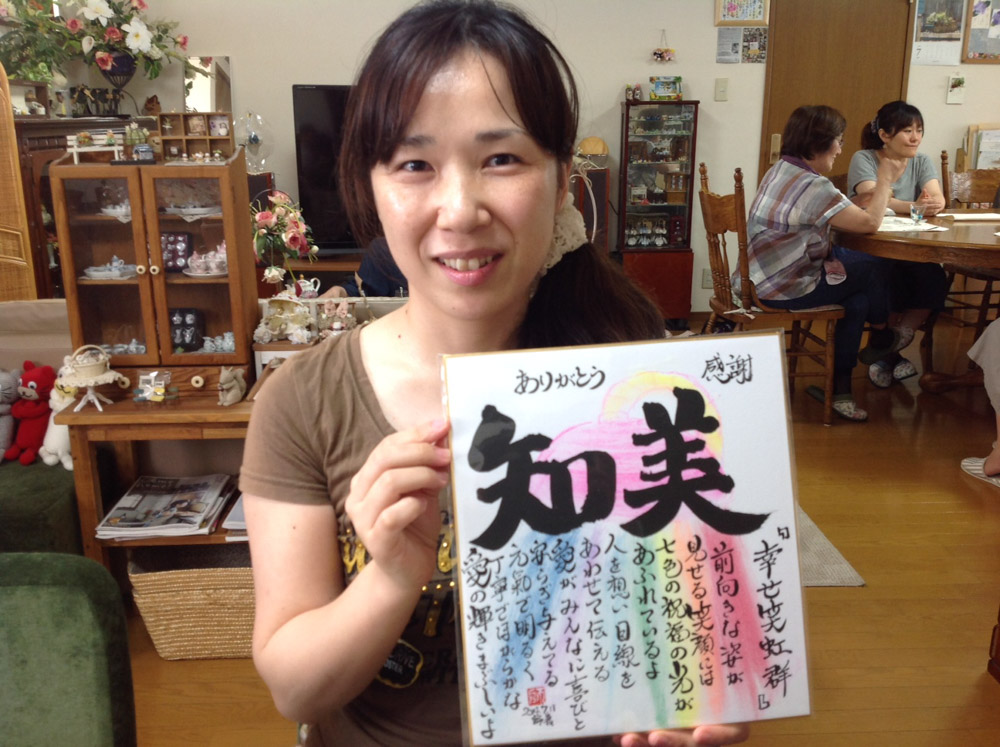 ありがとう
感謝
知美
『幸せ笑虹群』
前向きな姿が
見せる笑顔には
七色の祝福の光が
あふれているよ
人を想い目線を
あわせて伝える
愛がみんなに喜びと
安らぎ与えてる
元氣で明るく
丁寧でほがらかな
愛の輝きまぶしいよ